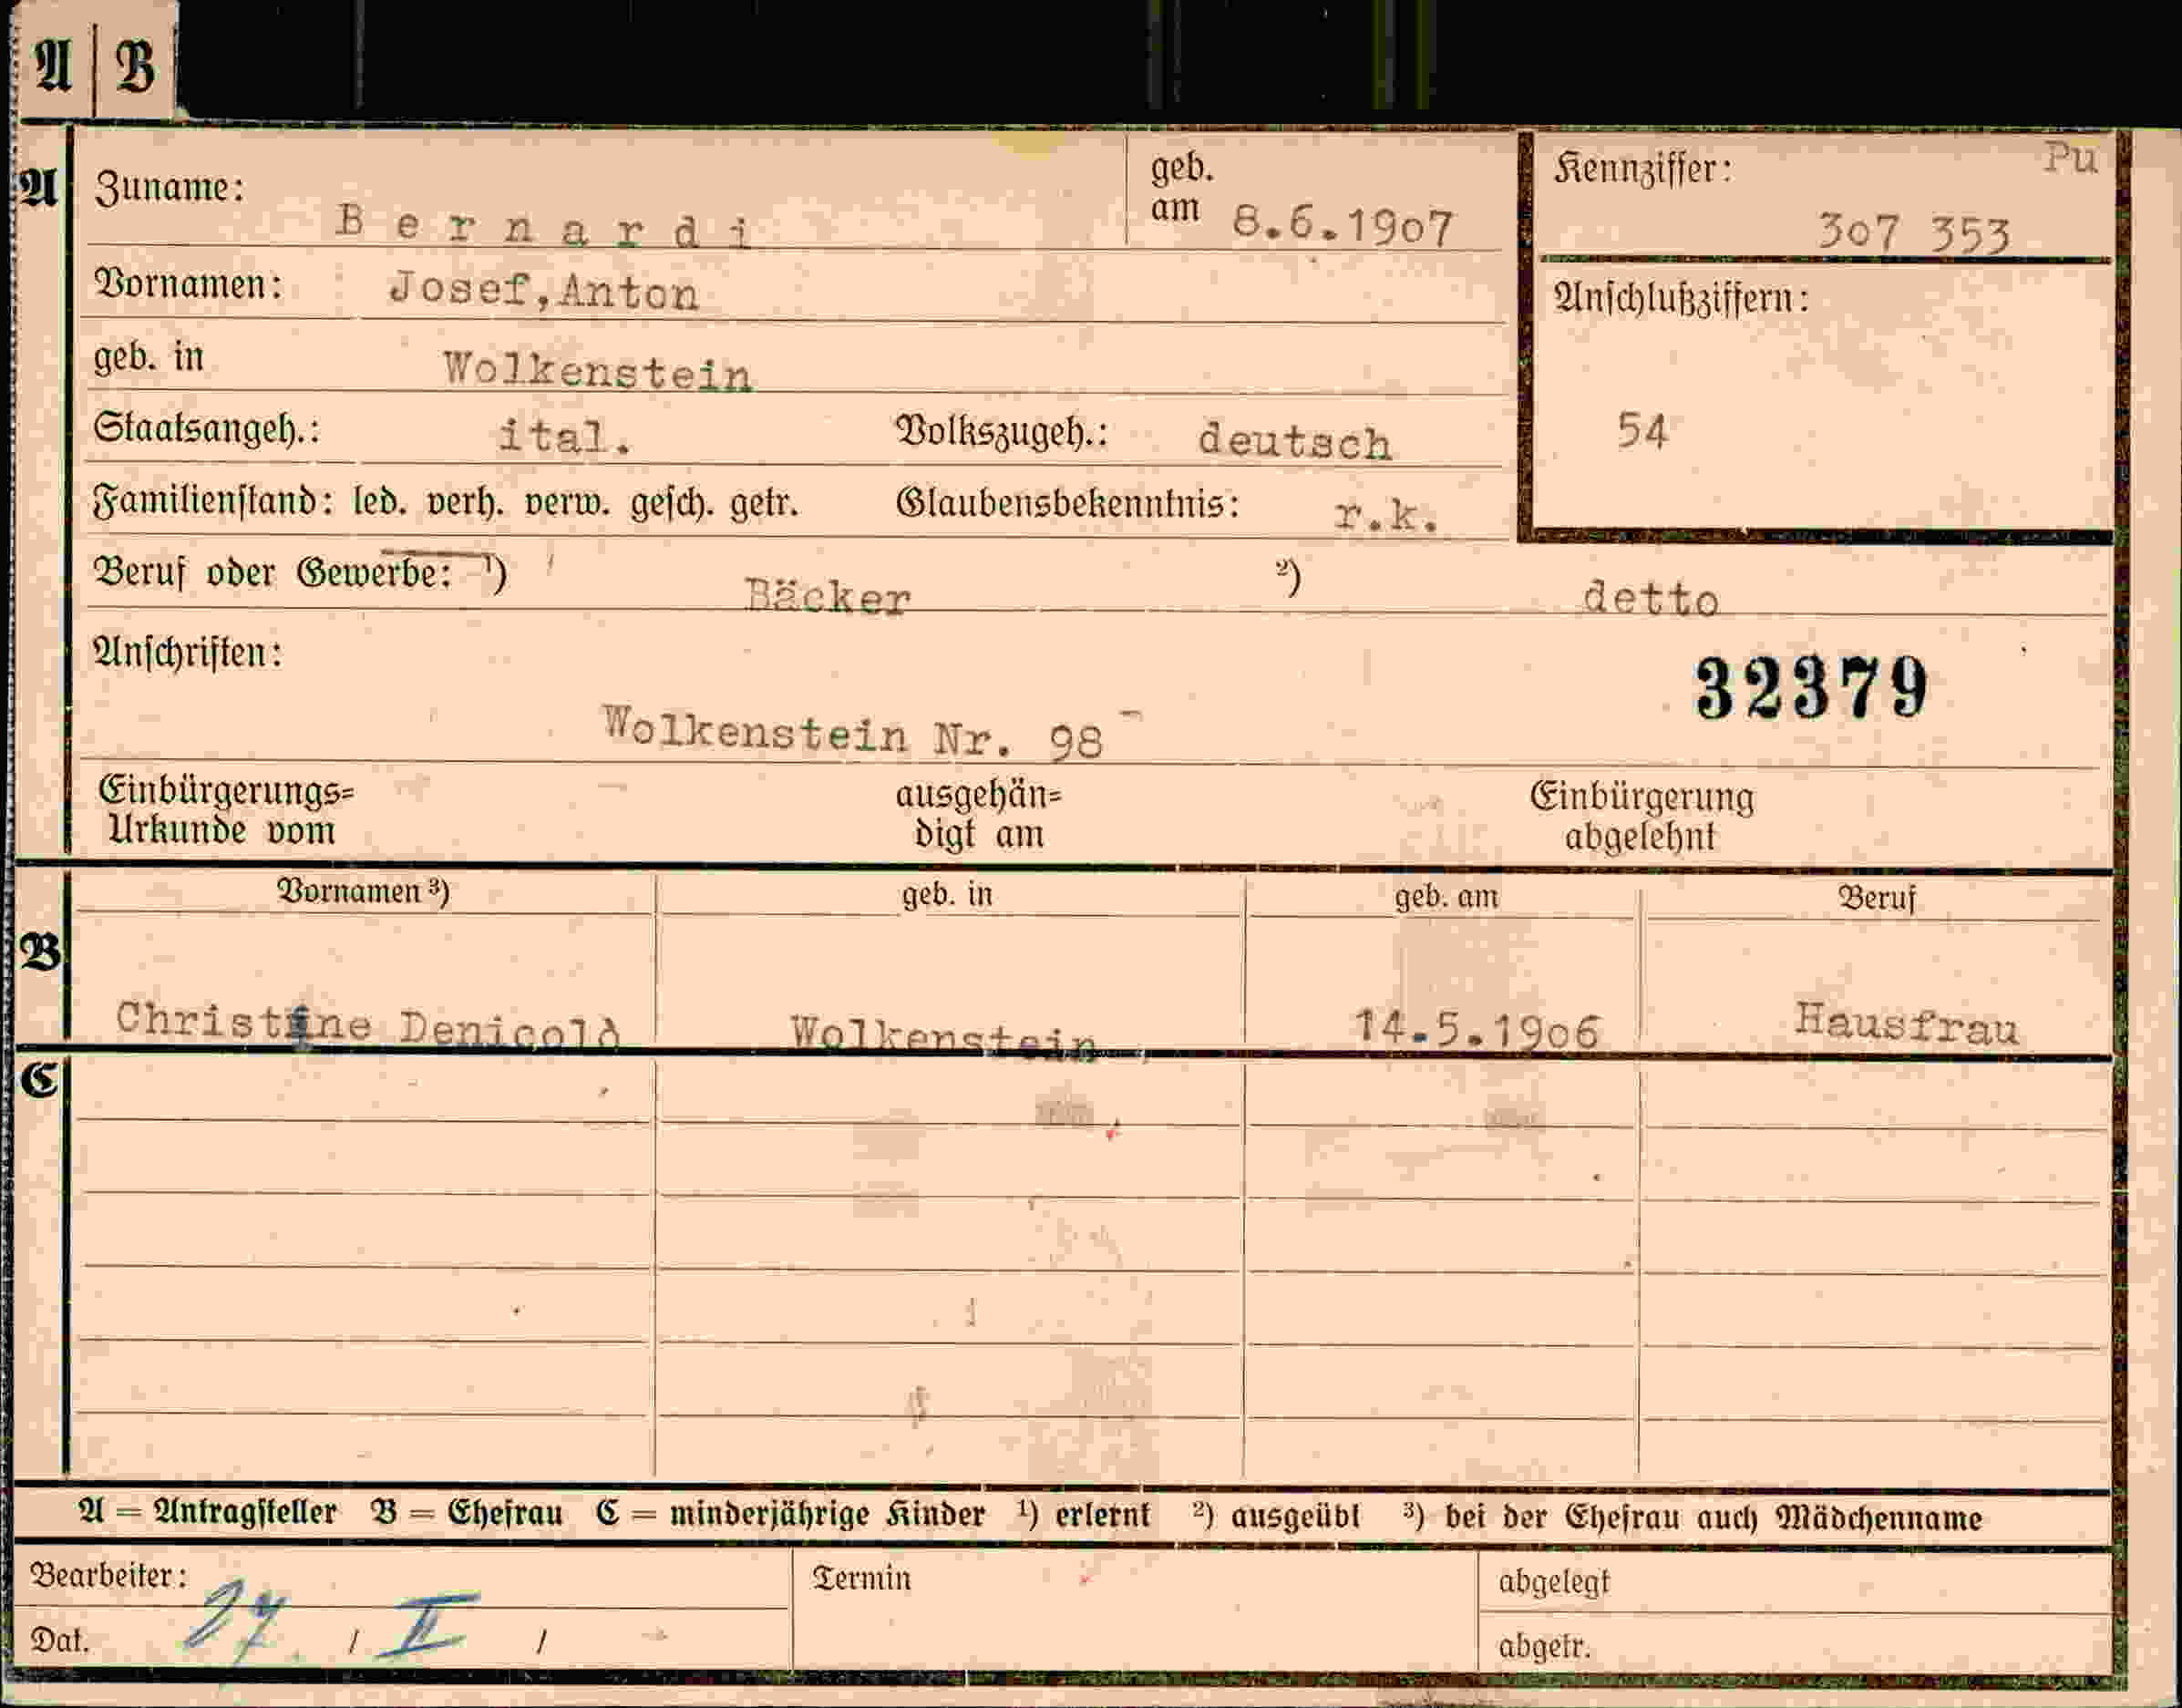 A | B
A Zuname: Bernardi geb. am 8.6.1907 Kennziffer: Pu 307 353
Vornamen: Josef,Anton Anschlußziffern:
geb. in Wolkenstein
Staatsangeh.: ital. Volkszugeh.: deutsch 54
Familienstand: led. verh. verw. gesch. getr. Glaubensbekenntnis: r.k.
Beruf oder Gewerbe: ¹) Bäcker ²) detto
Anschriften: 32379
Wolkenstein Nr. 98
Einbürgerungs= ausgehän= Einbürgerung
Urkunde vom digt am abgelehnt
Vornamen ³) geb. in geb. am Beruf
B
Christine Denicolò Wolkenstein 14.5.1906 Hausfrau
C
A = Antragsteller B = Ehefrau C = minderjährige Kinder ¹) erlernt ²) ausgeübt ³) bei der Ehefrau auch Mädchenname
Bearbeiter: Termin abgelegt
Dat. 27 / II / abgetr.